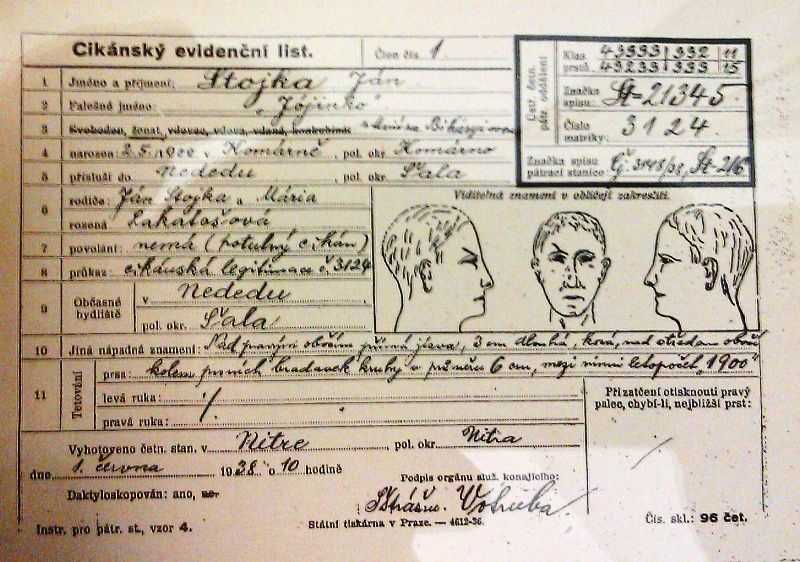 Cikánský evidenční list.
Člen čís. 1
Ústř. četn. pátr. oddělení
Klas. prstů. 43333/332 11
43233/333 15
Značka spisu: Št-21345.
Číslo matriky: 3124
Značka spisu pátrací stanice: Čj. 3148/38, Št-216
1 Jméno a příjmení: Stojka Ján
2 Falešné jméno: "Jójinko"
3 Svoboden, ženat, vdovec, vdova, vdaná, konkubina:
4 narozen: 2.5.1900 v Komárně, pol. okr. Komárno
5 přísluší do Nededu, pol. okr. Šala
6 rodiče: Ján Stojka a Mária
rozená Lakatošová
7 povolání: nemá (potulný cikán)
8 průkaz: cikánská legitimace č. 3124
9 Občasné bydliště v Nededu
pol. okr. Šala
Viditelná znamení v obličeji zakresliti.
10 Jiná nápadná znamení: Nad pravým obočím přímá jizva, 3 cm dlouhá, nad středem obočí
11 Tetování
prsa: kolem prsních bradavek kruhy v průměru 6 cm, mezi nimi letopočet "1900"
levá ruka:
pravá ruka:
Při zatčení otisknouti pravý palec, chybí-li, nejbližší prst:
Vyhotoveno četn. stan. v Nitre pol. okr. Nitra
dne 1. června 1938 o 10 hodině
Podpis orgánu služ. konajícího:
Daktyloskopován: ano, ne.
Strážm. Votruba
Instr. pro pátr. st., vzor 4.
Státní tiskárna v Praze. — 4612-36.
Čís. skl.: 96 čet.